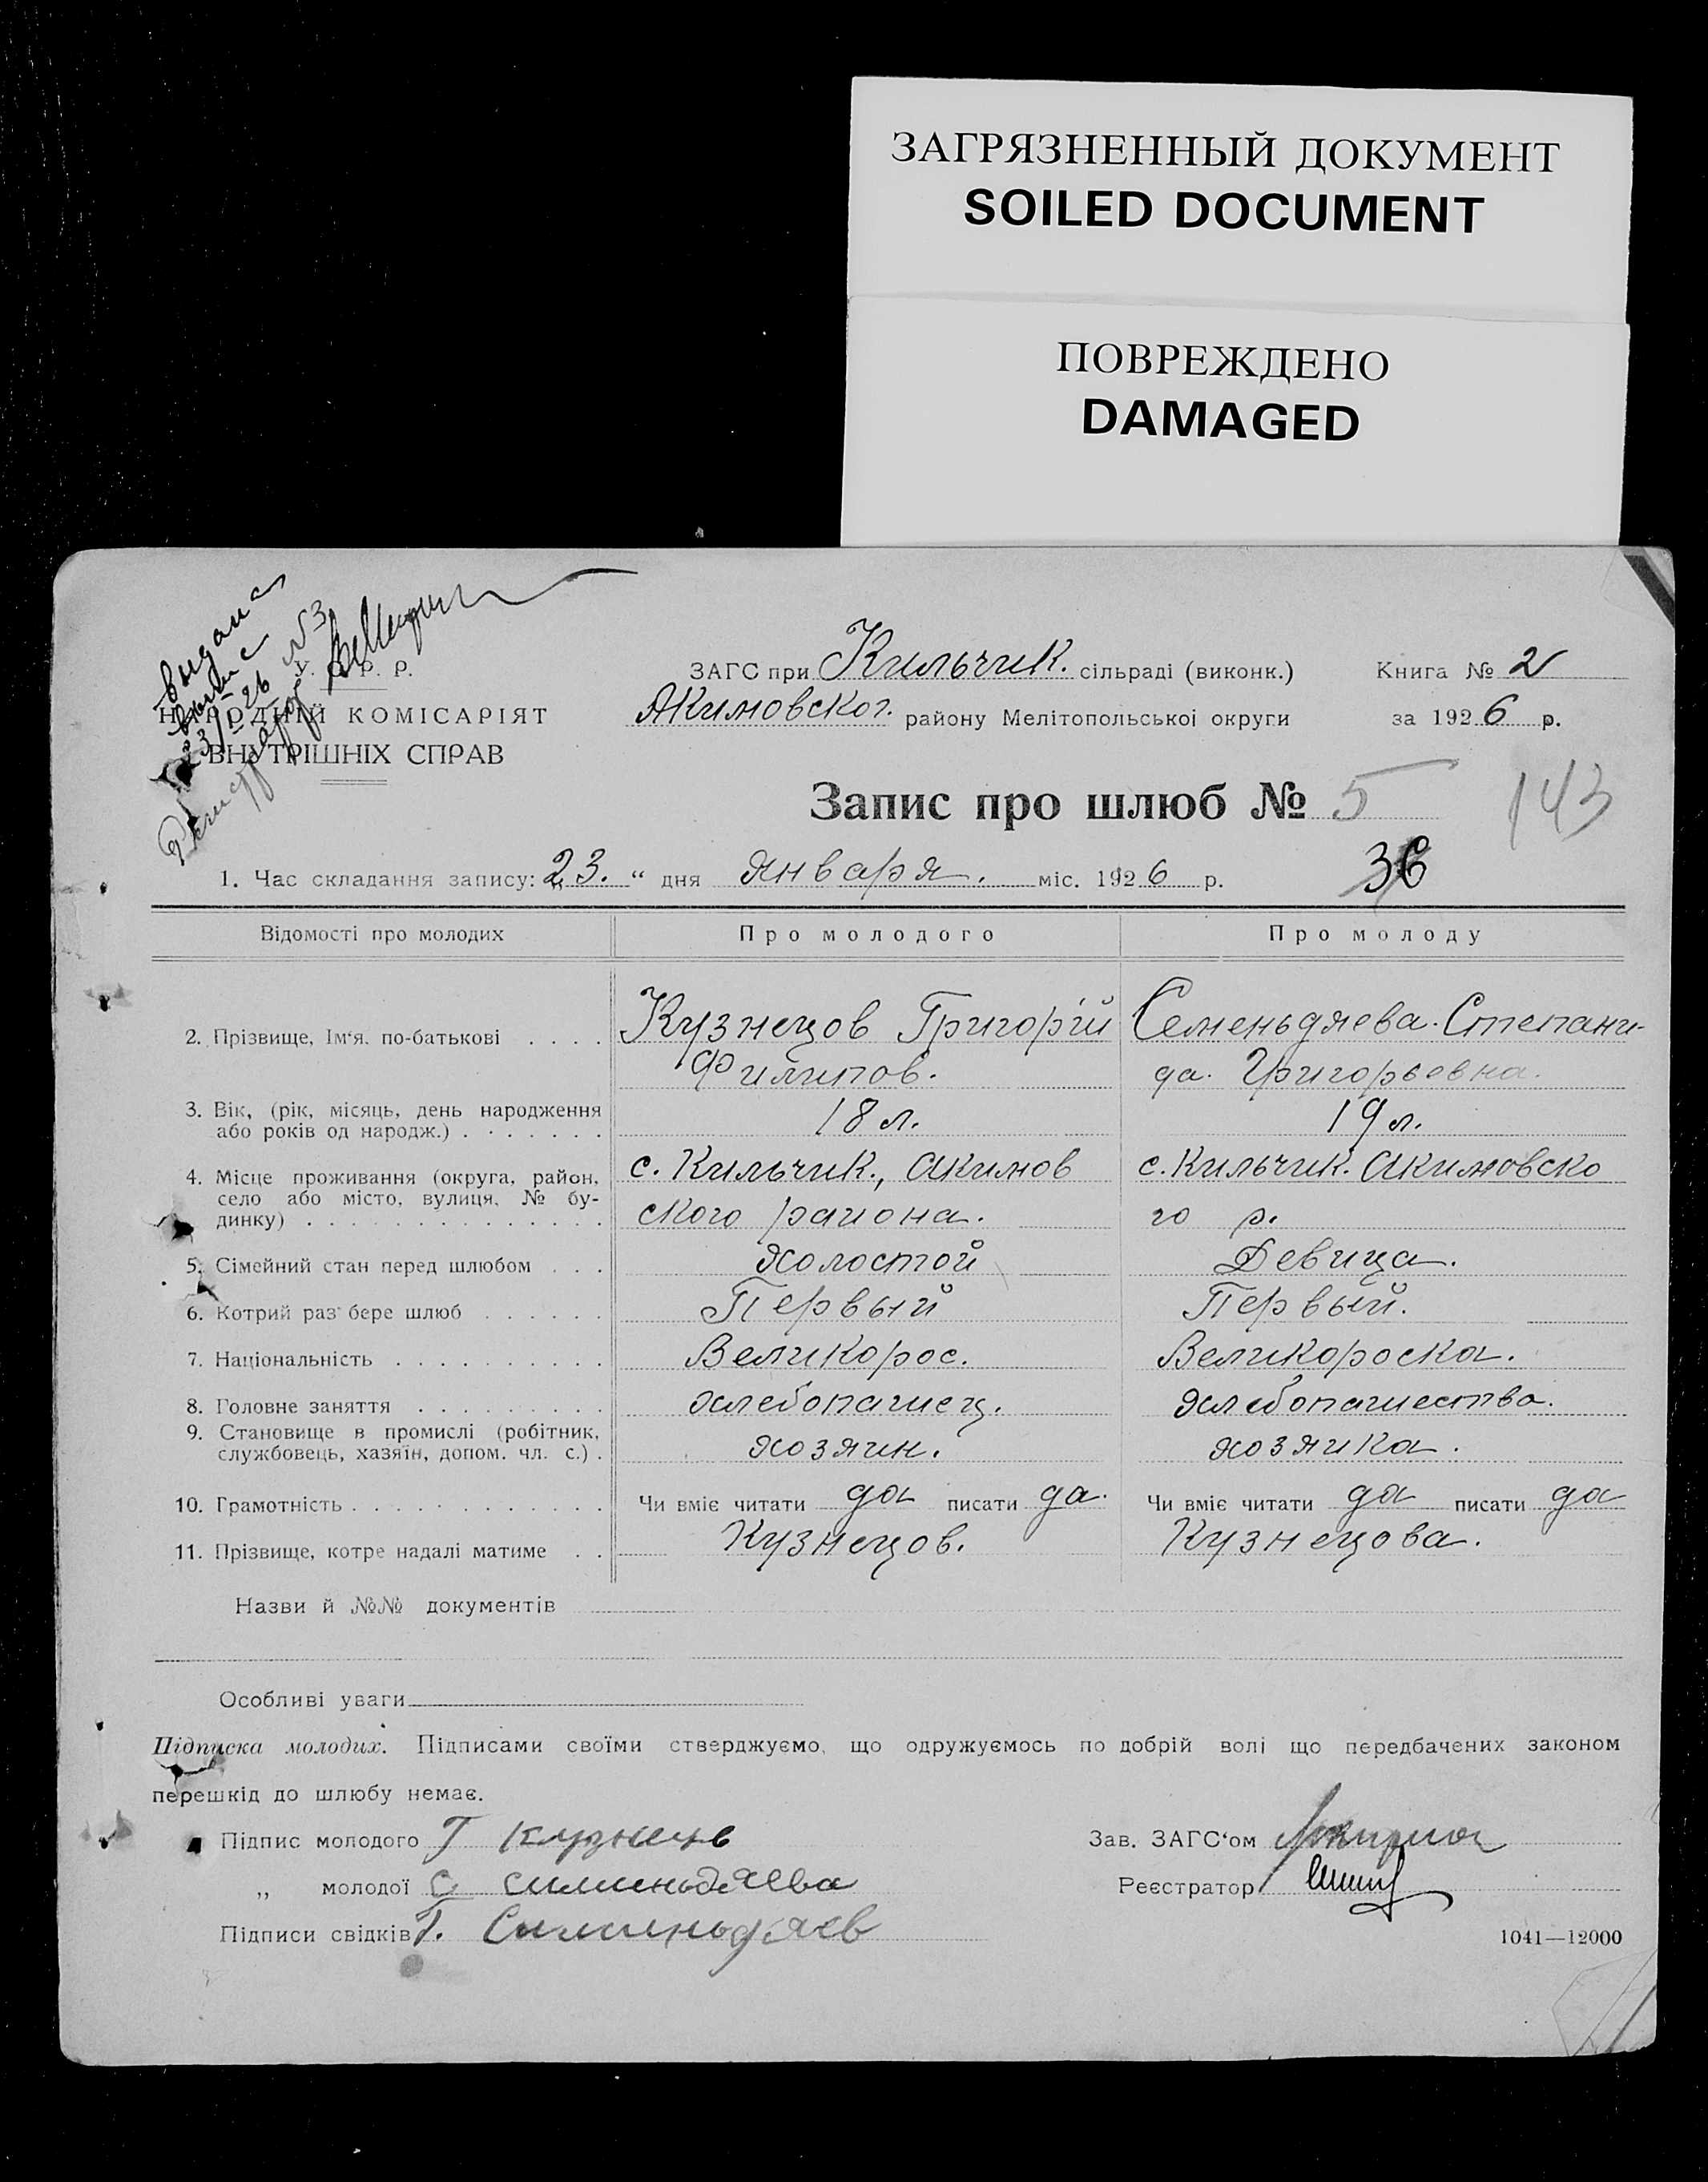 ЗАГРЯЗНЕННЫЙ ДОКУМЕНТ
SOILED DOCUMENT
ПОВРЕЖДЕНО
DAMAGED
выдана
выпис
23/I 26 №3
У. С. Р. Р.
НАРОДНІЙ КОМІСАРІЯТ
ВНУТРІШНІХ СПРАВ
ЗАГС при Кильчик. сільраді (виконк.) Книга № 2
Акимовског. району Мелітопольської округи за 1926 р.
Запис про шлюб № 5 143
36
1. Час складання запису: „23.“ дня января. міс. 1926 р.
Відомості про молодих Про молодого Про молоду
2. Прізвище, Ім‘я, по-батькові . . . . Кузнецов Григорій Семеньдяева. Степани-
Филипов. да. Григорьевна.
3. Вік, (рік, місяць, день народження
або років од народж.) . . . . . . . 18 л. 19 л.
4. Місце проживання (округа, район, с. Кильчик., Акимов с. Кильчик. Акимовско
село або місто, вулиця, № бу-
динку) . . . . . . . . . . . . . . ского района. го р.
5. Сімейний стан перед шлюбом . . . Холостой Девица.
6. Котрий раз бере шлюб . . . . . . Первый Первый.
7. Національність . . . . . . . . . . Великорос. Великороска.
8. Головне заняття . . . . . . . . . хлебопашец. хлебопашества.
9. Становище в промислі (робітник,
службовець, хазяїн, допом. чл. с.) . хозяин. хозяика.
10. Грамотність . . . . . . . . . . . . Чи вміє читати да писати да. Чи вміє читати да писати да
11. Прізвище, котре надалі матиме . . Кузнецов. Кузнецова.
Назви й №№ документів
Особливі уваги
Підписка молодих. Підписами своїми стверджуємо, що одружуємось по добрій волі що передбачених законом
перешкід до шлюбу немає.
Підпис молодого Г Кузнецв Зав. ЗАГС‘ом
„ молодої С Симиньдяева Реєстратор
Підписи свідків Г. Симиньдяев
1041—12000